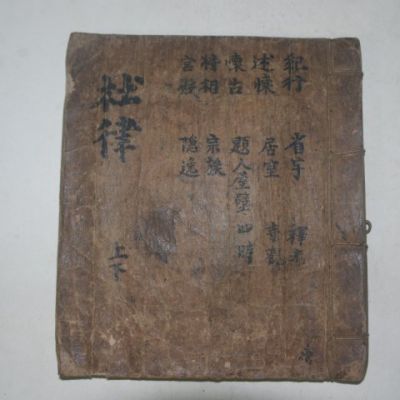 杜律
上下
紀行
述懷
懷古
將相
宮殿
省宇 釋老
居室 寺觀
題人屋壁 四時
宗族
隱逸